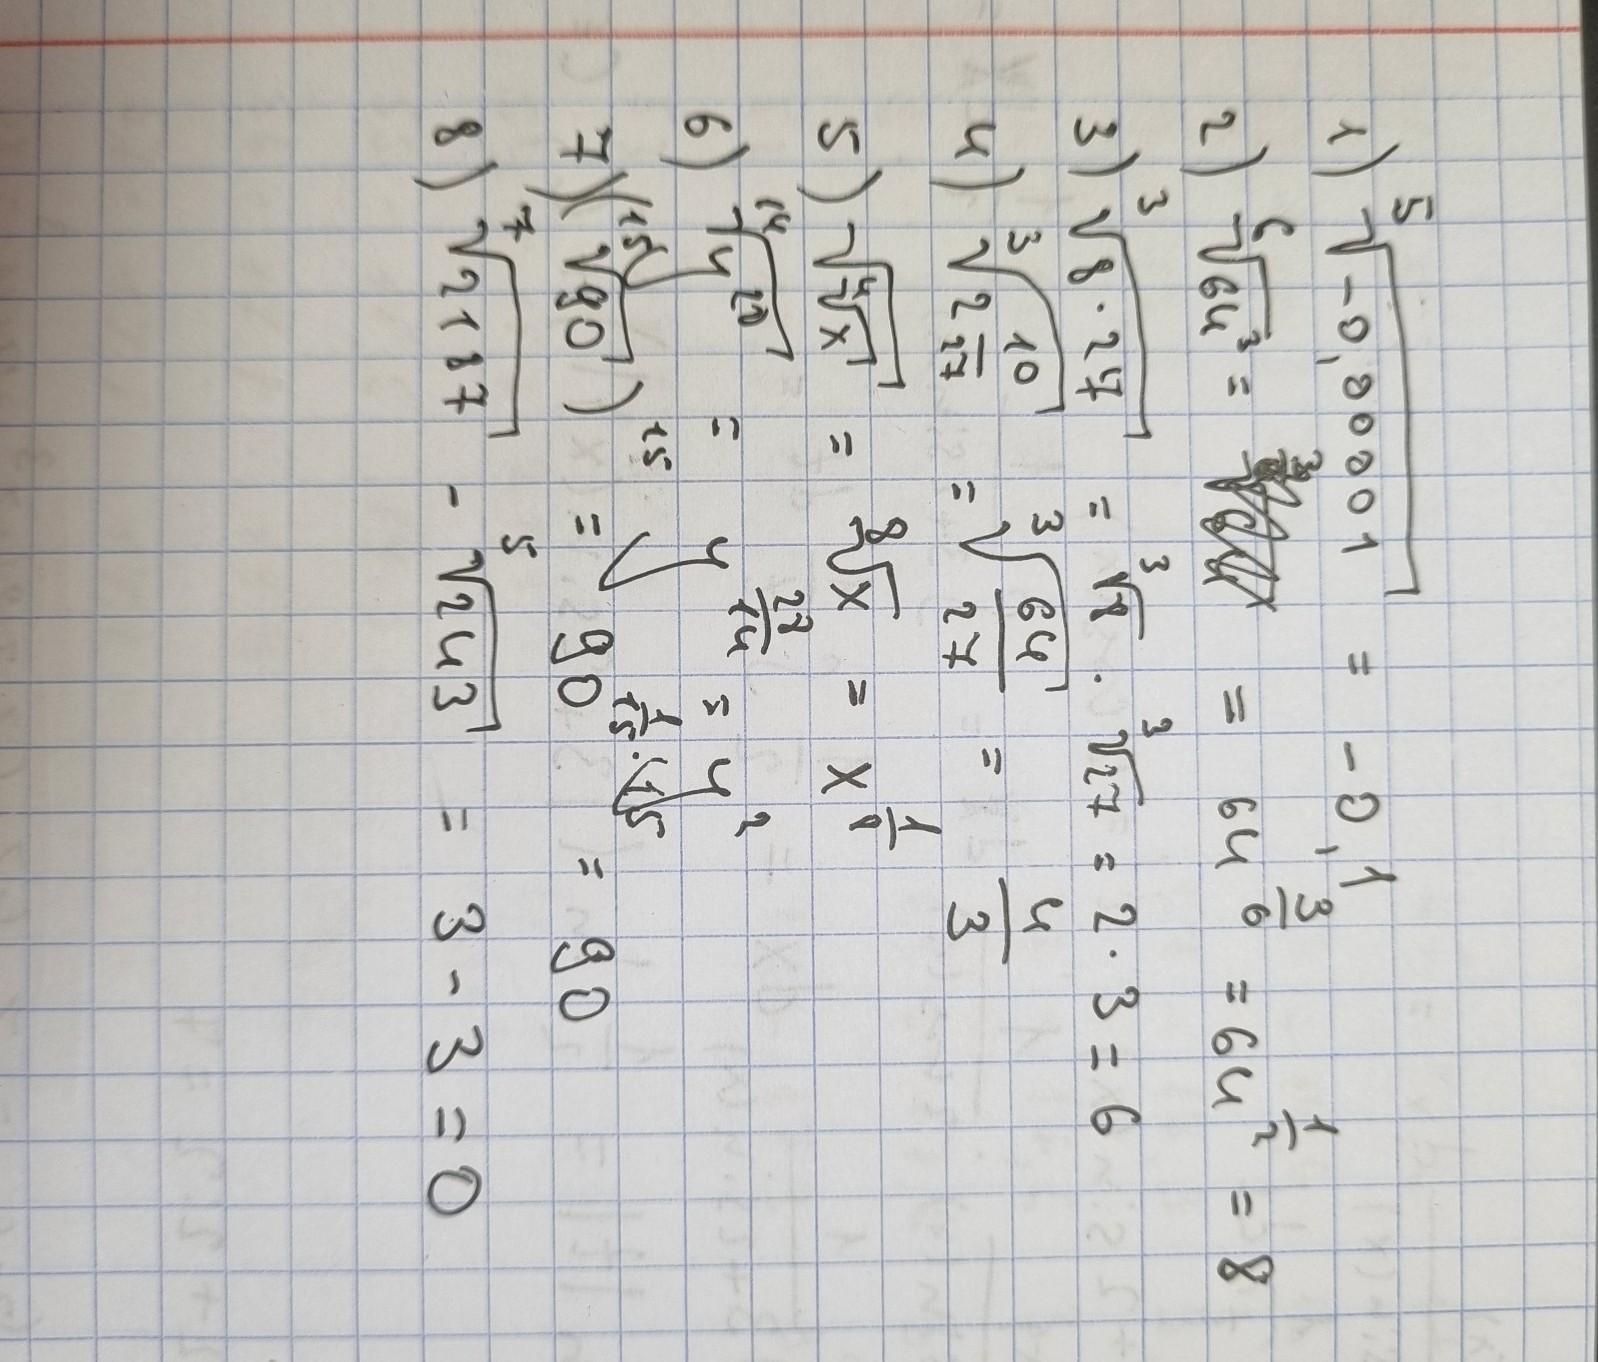 1) ⁵√-0,00001 = -0,1
2) ⁶√64³ = = 64^(3/6) = 64^(1/2) = 8
3) ³√8·27 = ³√8 · ³√27 = 2·3 = 6
4) ³√2 10/27 = ³√64/27 = 4/3
5) √⁴√x = ⁸√x = x^(1/8)
6) ¹⁴√y²⁸ = y^(28/14) = y²
7) (¹⁵√90)¹⁵ = 90^(1/15·15) = 90
8) ⁷√2187 - ⁵√243 = 3-3=0